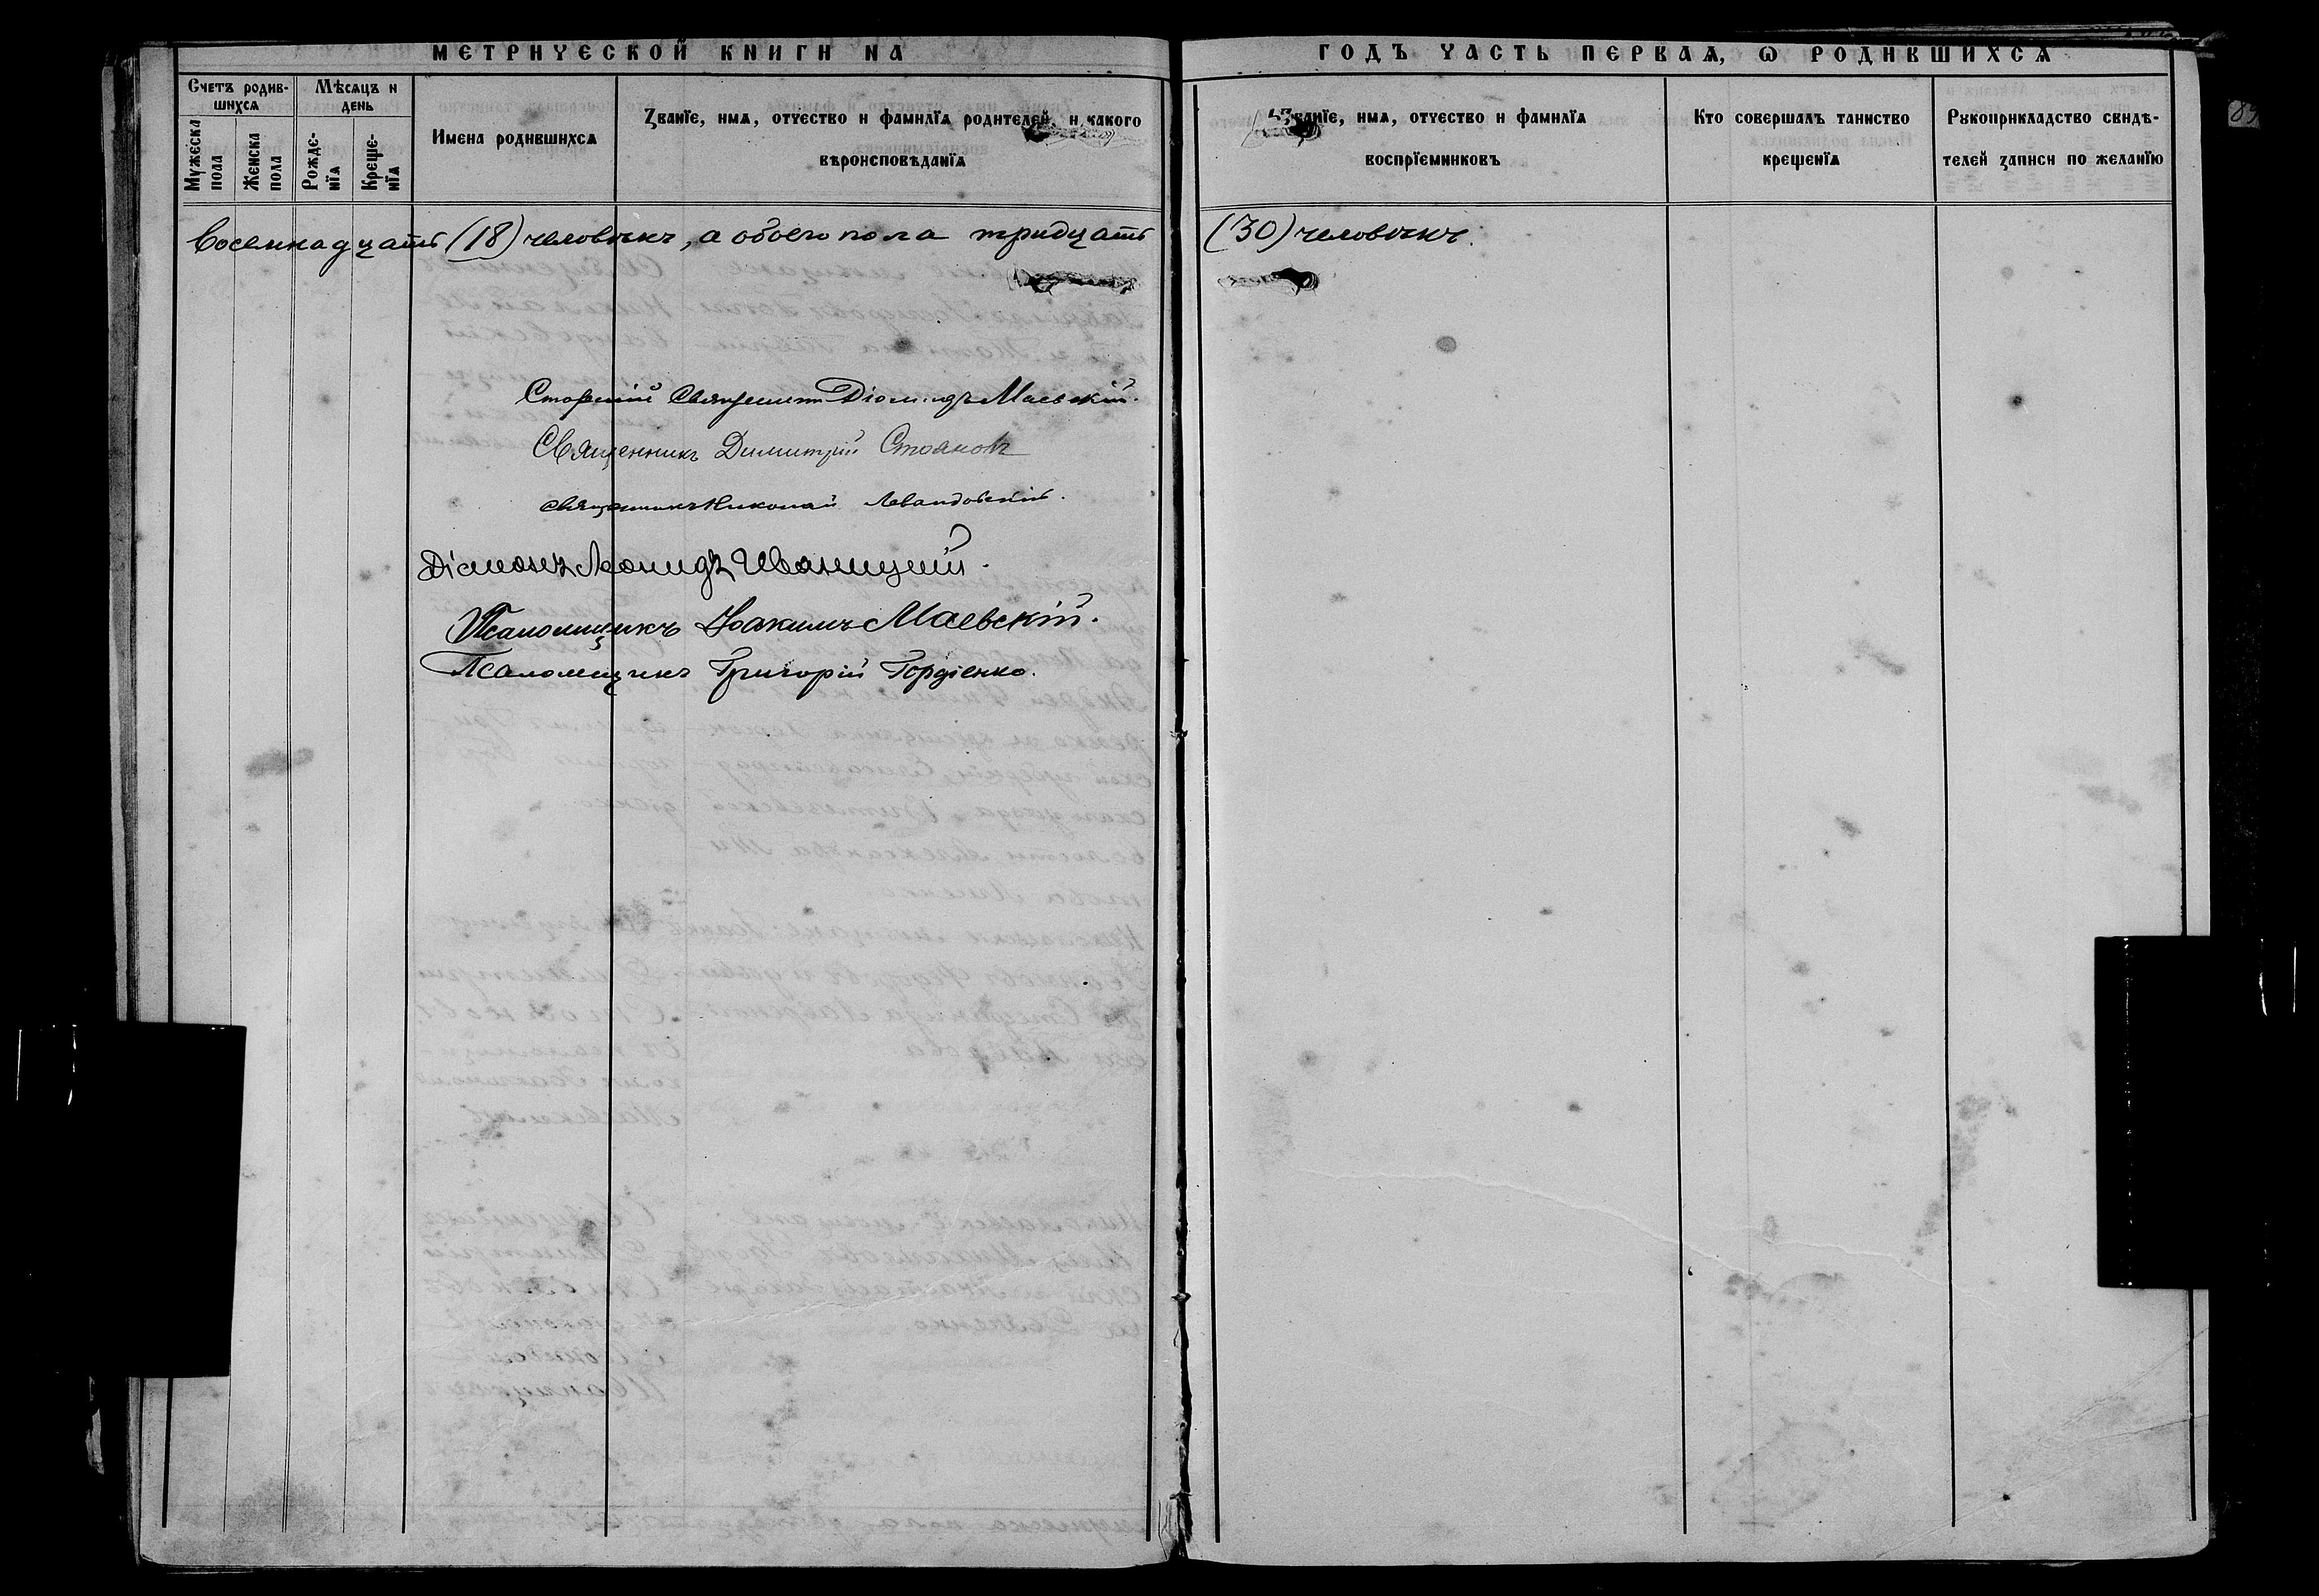 МЕТРИЧЕСКОЙ КНИГИ НА ГОДЪ ЧАСТЬ ПЕРВАЯ, Ѡ РОДИВШИХСЯ
Счетъ родив-
шихся
Мужеска
пола
Женска
пола
Мѣсяцъ и
день
Рожде-
нїя
Креще-
нїя
Имена родившихся
Званїе, имя, отчество и фамилїя родителей, и какого
вѣроисповѣданїя
Званїе, имя, отчество и фамилїя
воспрїемниковъ
Кто совершалъ таинство
крещенїя
Рукоприкладство свидѣ-
телей записи по желанїю
восемнадцать (18) человѣкъ, а обоего пола тридцать (30) человѣкъ.
Священникъ Діомидъ Маевскій.
Священникъ Димитрій Стояновъ
Священникъ Николай Левандовскій.
Діаконъ Леонидъ Иваницкій.
Псаломщикъ Іоакимъ Маевскій.
Псаломщикъ Григорій Гордіенко.